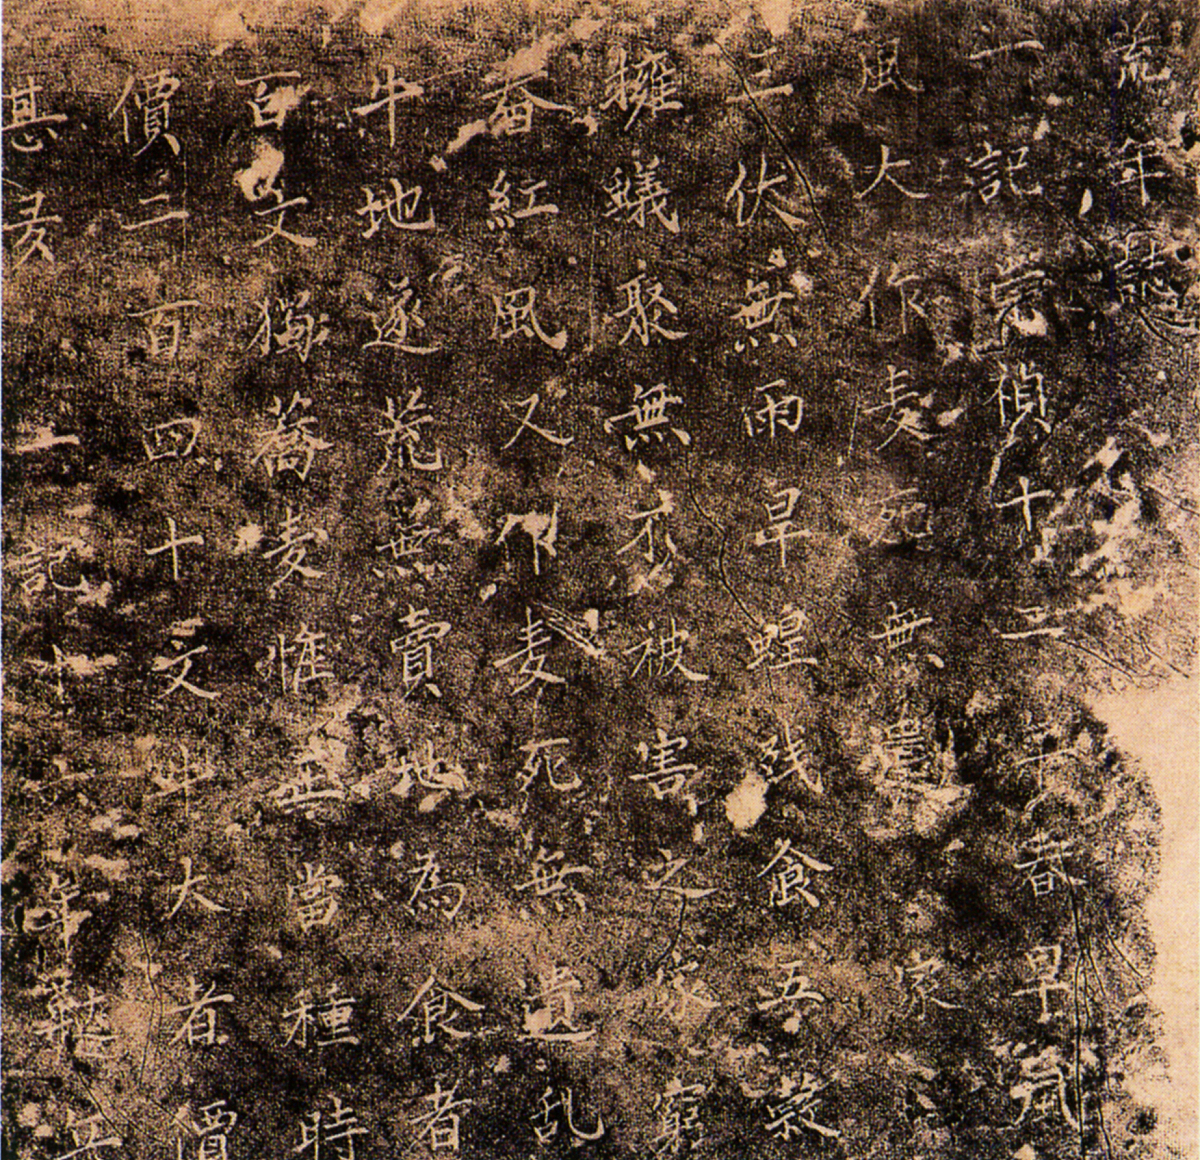 荒年誌
一記崇禎十三年春旱風
風大作麦死無遺家
三伏無雨旱蝗残食五穀
擁蟻聚無不被害之家窮
畜紅風又作麦死無遺乱
牛地遂荒無賣地為食者
百文糯蕎麦惟無當種時
價二百四十文斗大者價
甚麦一記十年